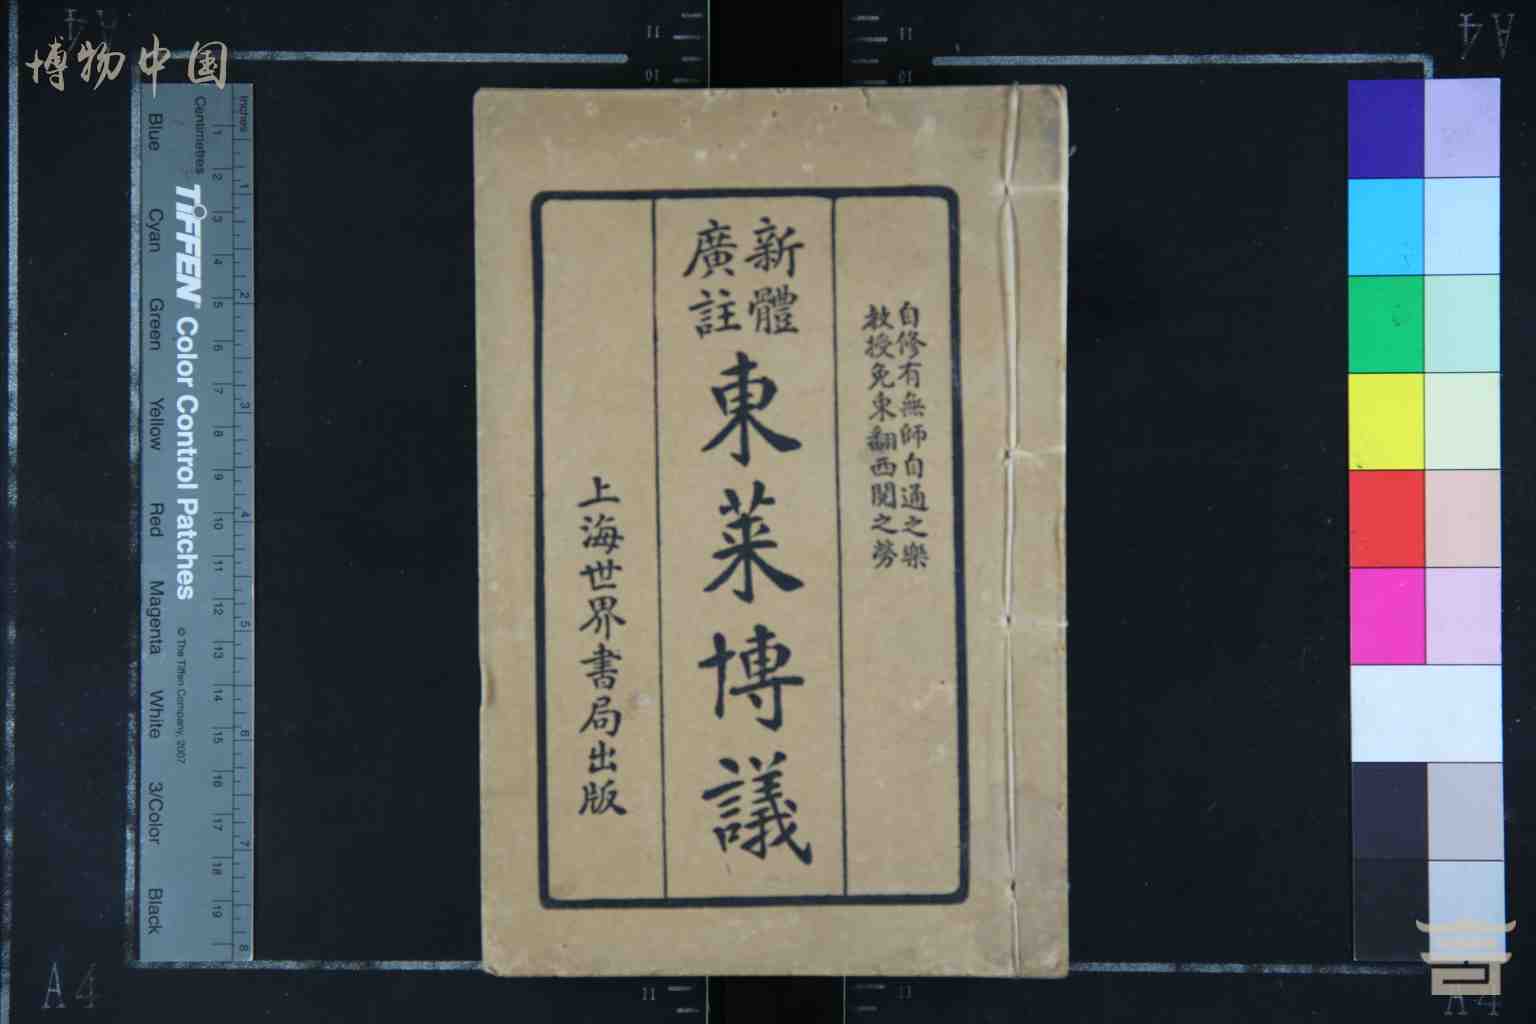 博物中国
自修有無師自通之樂
教授免東翻西閱之勞
新體
廣註
東萊博議
上海世界書局出版
inches
1
2
3
4
5
6
7
8
Centimetres
1
2
3
4
5
6
7
8
9
10
11
12
13
14
15
16
17
18
19
TIFFEN Color Control Patches
© The Tiffen Company, 2007
Blue
Cyan
Green
Yellow
Red
Magenta
White
3/Color
Black
A4
A4
A4
A4
11
11
10
10
11
11